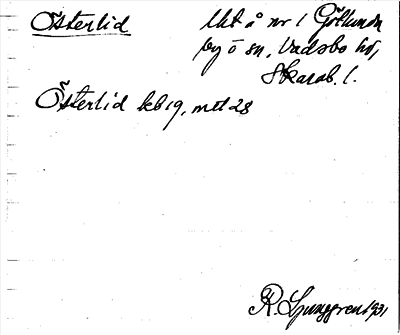 Österlid
Ukt å nr 1 Götlunda
by o sn, Vadsbo hd,
Skarab. l.
Österlid kb 19, mtl 28
R. Ljunggren 1931